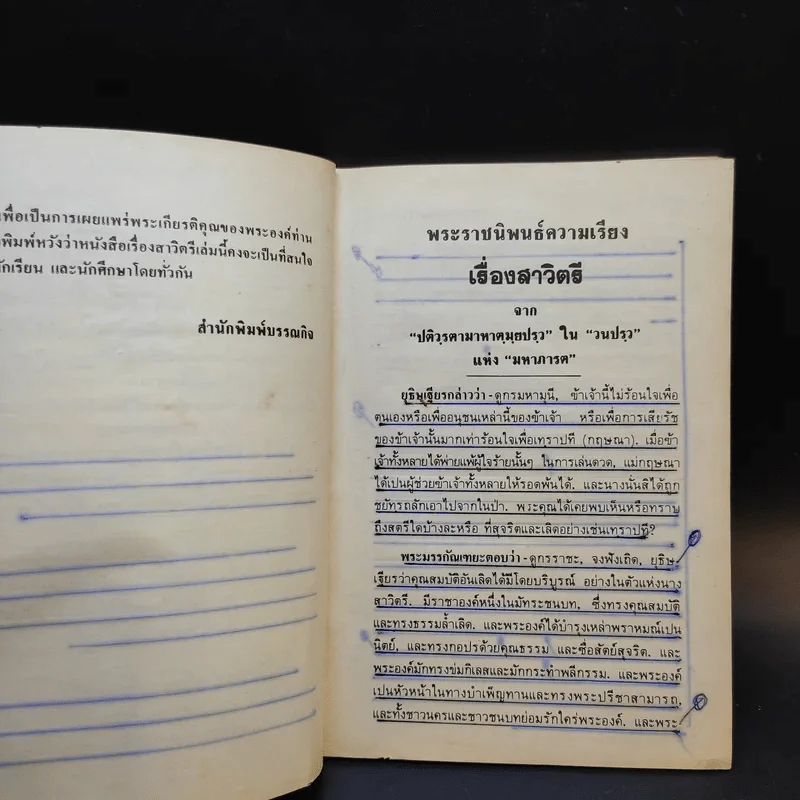 เพื่อเป็นการเผยแพร่พระเกียรติคุณของพระองค์ท่าน
พิมพ์หวังว่าหนังสือเรื่องสาวิตรีเล่มนี้คงจะเป็นที่สนใจ
นักเรียน และนักศึกษาโดยทั่วกัน
สำนักพิมพ์บรรณกิจ
พระราชนิพนธ์ความเรียง
เรื่องสาวิตรี
จาก
“ปติวฺรตามาหาตฺมฺยปรฺว” ใน “วนปรฺว”
แห่ง “มหาภารต”
ยุธิษฺเฐียรกล่าวว่า - ดูกรมหามุนี, ข้าเจ้านี้ไม่ร้อนใจเพื่อ
ตนเองหรือเพื่ออนุชนเหล่านี้ของข้าเจ้า หรือเพื่อการเสียรัช
ของข้าเจ้านั้นมากเท่าร้อนใจเพื่อเทฺราปที (กฤษณา). เมื่อข้า
เจ้าทั้งหลายได้พ่ายแพ้ผู้ใจร้ายนั้นๆ ในการเล่นดวด, แม่กฤษณา
ได้เปนผู้ช่วยข้าเจ้าทั้งหลายให้รอดพ้นได้. และนางนั้นสิได้ถูก
ชยัทรถลักเอาไปจากในป่า. พระคุณได้เคยพบเห็นหรือทราบ
ถึงสตรีใดบ้างละหรือ ที่สุจริตและเลิดอย่างเช่นเทฺราปที?
พระมรรกัณเฑยะตอบว่า - ดูกรราชะ, จงฟังเถิด, ยุธิษ-
เฐียรว่าคุณสมบัติอันเลิดได้มีโดยบริบูรณ์ อย่างในตัวแห่งนาง
สาวิตรี. มีราชาองค์หนึ่งในมัทระชนบท, ซึ่งทรงคุณสมบัติ
และทรงธรรมล้ำเลิด. และพระองค์ได้บำรุงเหล่าพราหมณ์เปน
นิตย์, และทรงกอปรด้วยคุณธรรม และซื่อสัตย์สุจริต. และ
พระองค์มักทรงข่มกิเลสและมักกระทำพลีกรรม. และพระองค์
เปนหัวหน้าในทางบำเพ็ญทานและทรงพระปรีชาสามารถ,
และทั้งชาวนครและชาวชนบทย่อมรักใคร่พระองค์. และพระ-